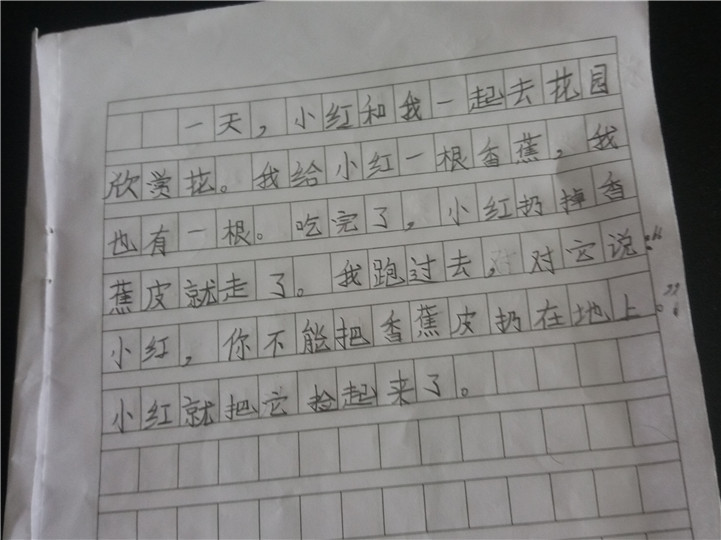 一天，小红和我一起去花园
欣赏花。我给小红一根香蕉，我
也有一根。吃完了，小红扔掉香
蕉皮就走了。我跑过去，对它说：“
小红，你不能把香蕉皮扔在地上。”
小红就把它捡起来了。